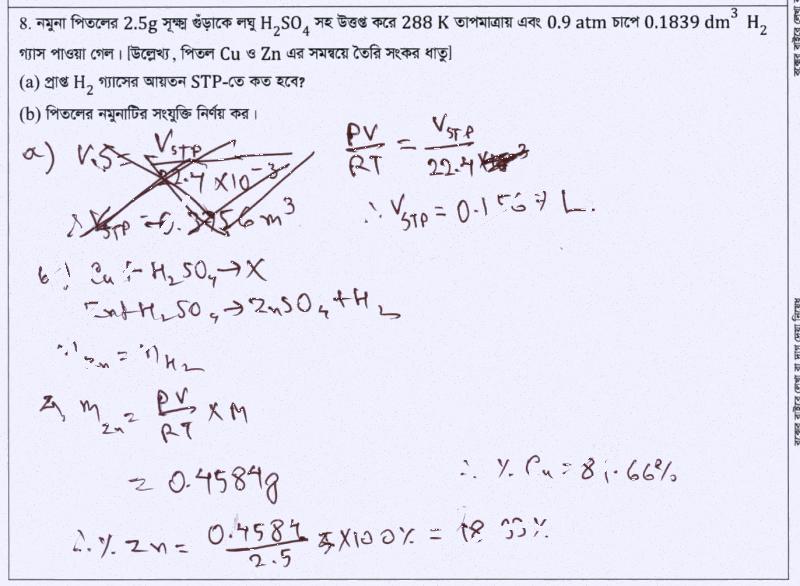 8. নমুনা পিতলের 2.5g সূক্ষ্ম গুঁড়াকে লঘু H₂SO₄ সহ উত্তপ্ত করে 288 K তাপমাত্রায় এবং 0.9 atm চাপে 0.1839 dm³ H₂
গ্যাস পাওয়া গেল। [উল্লেখ্য, পিতল Cu ও Zn এর সমন্বয়ে তৈরি সংকর ধাতু]
(a) প্রাপ্ত H₂ গ্যাসের আয়তন STP-তে কত হবে?
(b) পিতলের নমুনাটির সংযুক্তি নির্ণয় কর।
a) PV/RT = V_STP/22.4
∴ V_STP = 0.1567 L.
b) Cu + H₂SO₄ → X
Zn + H₂SO₄ → ZnSO₄ + H₂
∴ n_Zn = n_H₂
m_Zn = PV/RT × M
= 0.4584g
∴ % Cu = 81.66%
∴ % Zn = 0.4584/2.5 × 100% =